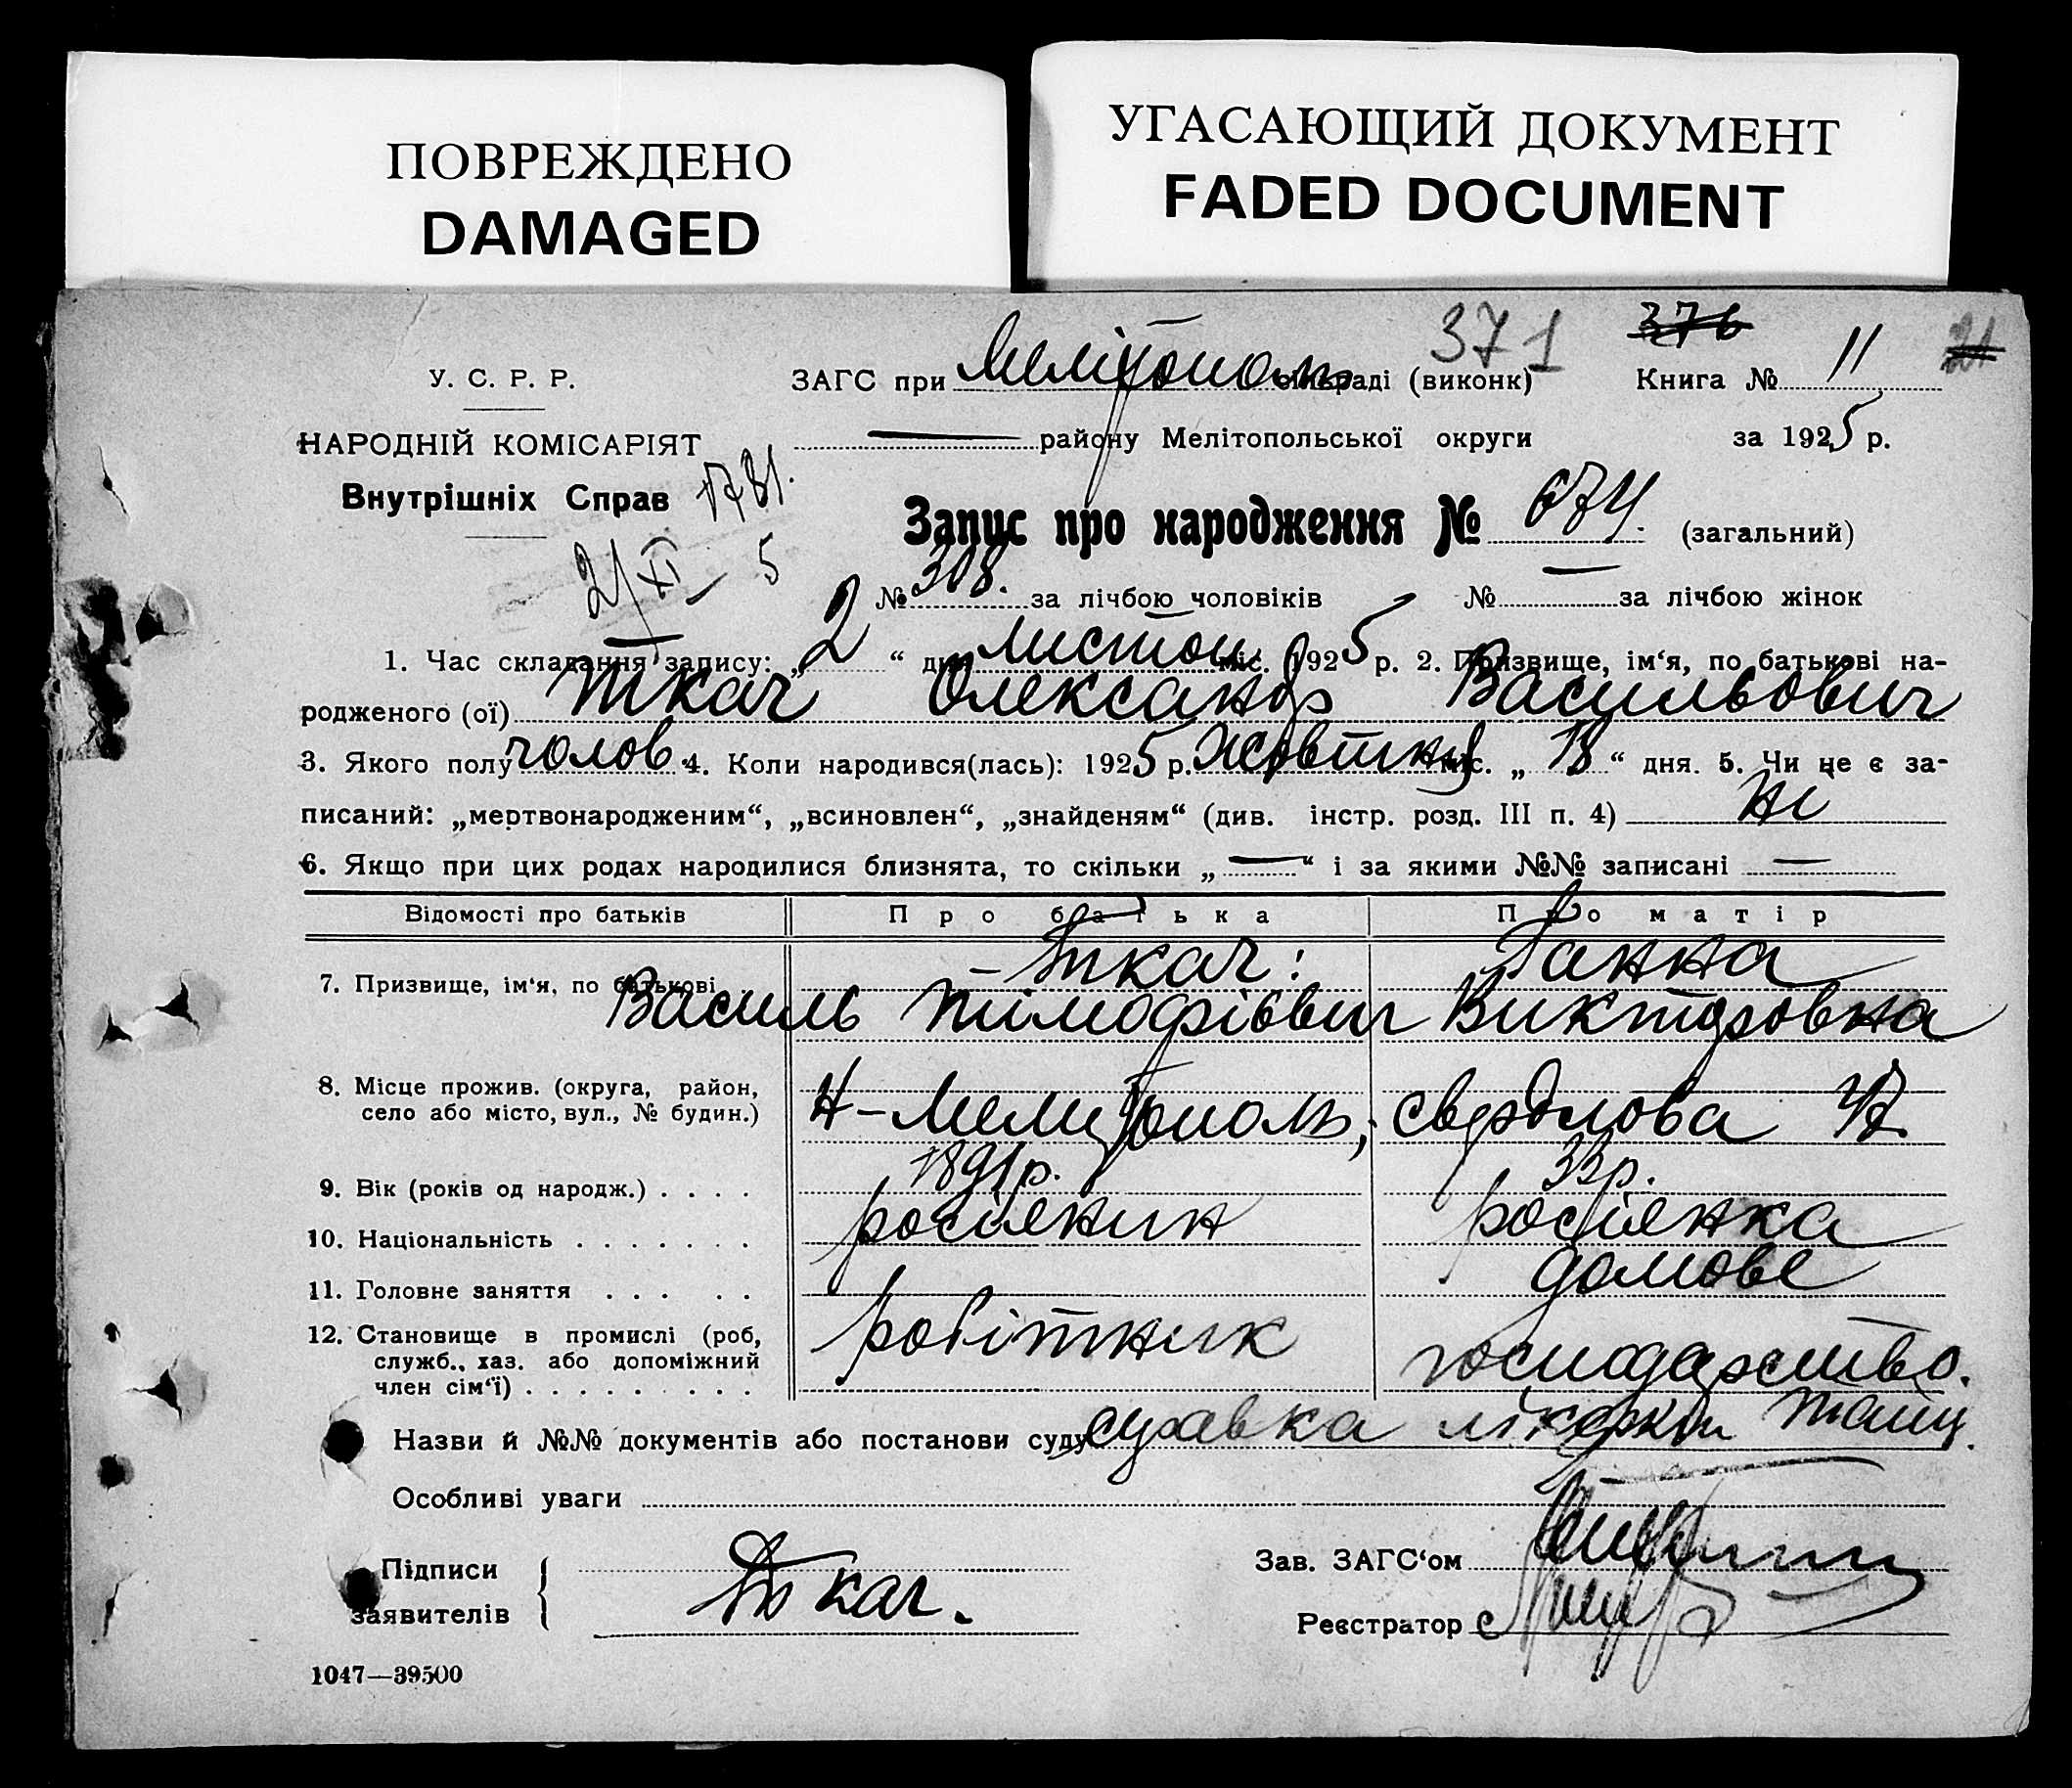 ПОВРЕЖДЕНО
DAMAGED
УГАСАЮЩИЙ ДОКУМЕНТ
FADED DOCUMENT
371 376
У. С. Р. Р. ЗАГС при Мелітополь міськраді (виконк) Книга № 11 21
НАРОДНІЙ КОМІСАРІЯТ — району Мелітопольської округи за 1925 р.
Внутрішніх Справ 1781.
Запис про народження № 674. (загальний)
2/XI – 5
№ 308. за лічбою чоловіків № — за лічбою жінок
1. Час складання запису: „2“ дня листоп міс. 1925 р. 2. Призвище, ім‘я, по батькові на-
родженого (ої) Ткач Олександр Васильович
3. Якого полу чолов. 4. Коли народився(лась): 1925 р. Жовтня міс. „18“ дня. 5. Чи не є за-
писаний: „мертвонародженим“, „всиновлен“, „знайденям“ (див. інстр. розд. III п. 4) ні
6. Якщо при цих родах народилися близнята, то скільки „—“ і за якими №№ записані —
Відомості про батьків Про батька Про матір
7. Призвище, ім‘я, по батькові – Ткач: Ганна
Василь Тімофіович Викторовна
8. Місце прожив. (округа, район,
село або місто, вул., № будин.) Н-Мелитополь, свердлова 47
9. Вік (років од народж.) . . . . 1891р. 33р.
10. Національність . . . . . . . росіянин росіянка
11. Головне заняття . . . . . домове
12. Становище в промислі (роб,
служб., хаз. або допоміжний
член сім‘ї) . . . . . . . . . робітник господарство.
Назви й №№ документів або постанови суду
Особливі уваги
Підписи
заявителів Ткач.
Зав. ЗАГС‘ом
Реєстратор
1047—39500